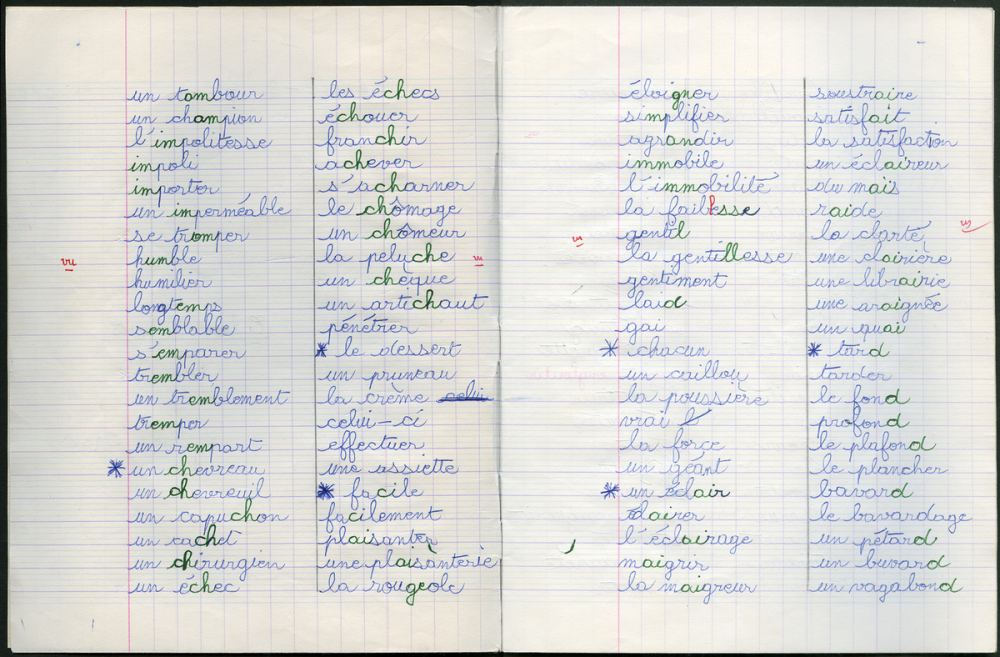 un tambour
un champion
l'impolitesse
impoli
importer
un imperméable
se tromper
humble
humilier
longtemps
semblable
s'emparer
trembler
un tremblement
tremper
un rempart
* un chevreau
un chevreuil
un capuchon
un cachet
un chirurgien
un échec
vu
les échecs
échouer
franchir
achever
s'acharner
le chômage
un chômeur
la peluche
vu
un chèque
un artichaut
pénétrer
* le dessert
un pruneau
la crème celui
celui-ci
effectuer
une assiette
* facile
facilement
plaisanter
une plaisanterie
la rougeole
éloigner
simplifier
agrandir
immobile
l'immobilité
la faiblesse
gentil
vu
la gentillesse
gentiment
laid
gai
* chacun
un caillou
la poussière
vrai
la force
un géant
* un éclair
éclairer
l'éclairage
maigrir
la maigreur
soustraire
satisfait
la satisfaction
un éclaireur
du maïs
raide
la clarté
vu
une clairière
une librairie
une araignée
un quai
* tard
tarder
le fond
profond
le plafond
le plancher
bavard
le bavardage
un pétard
un buvard
un vagabond